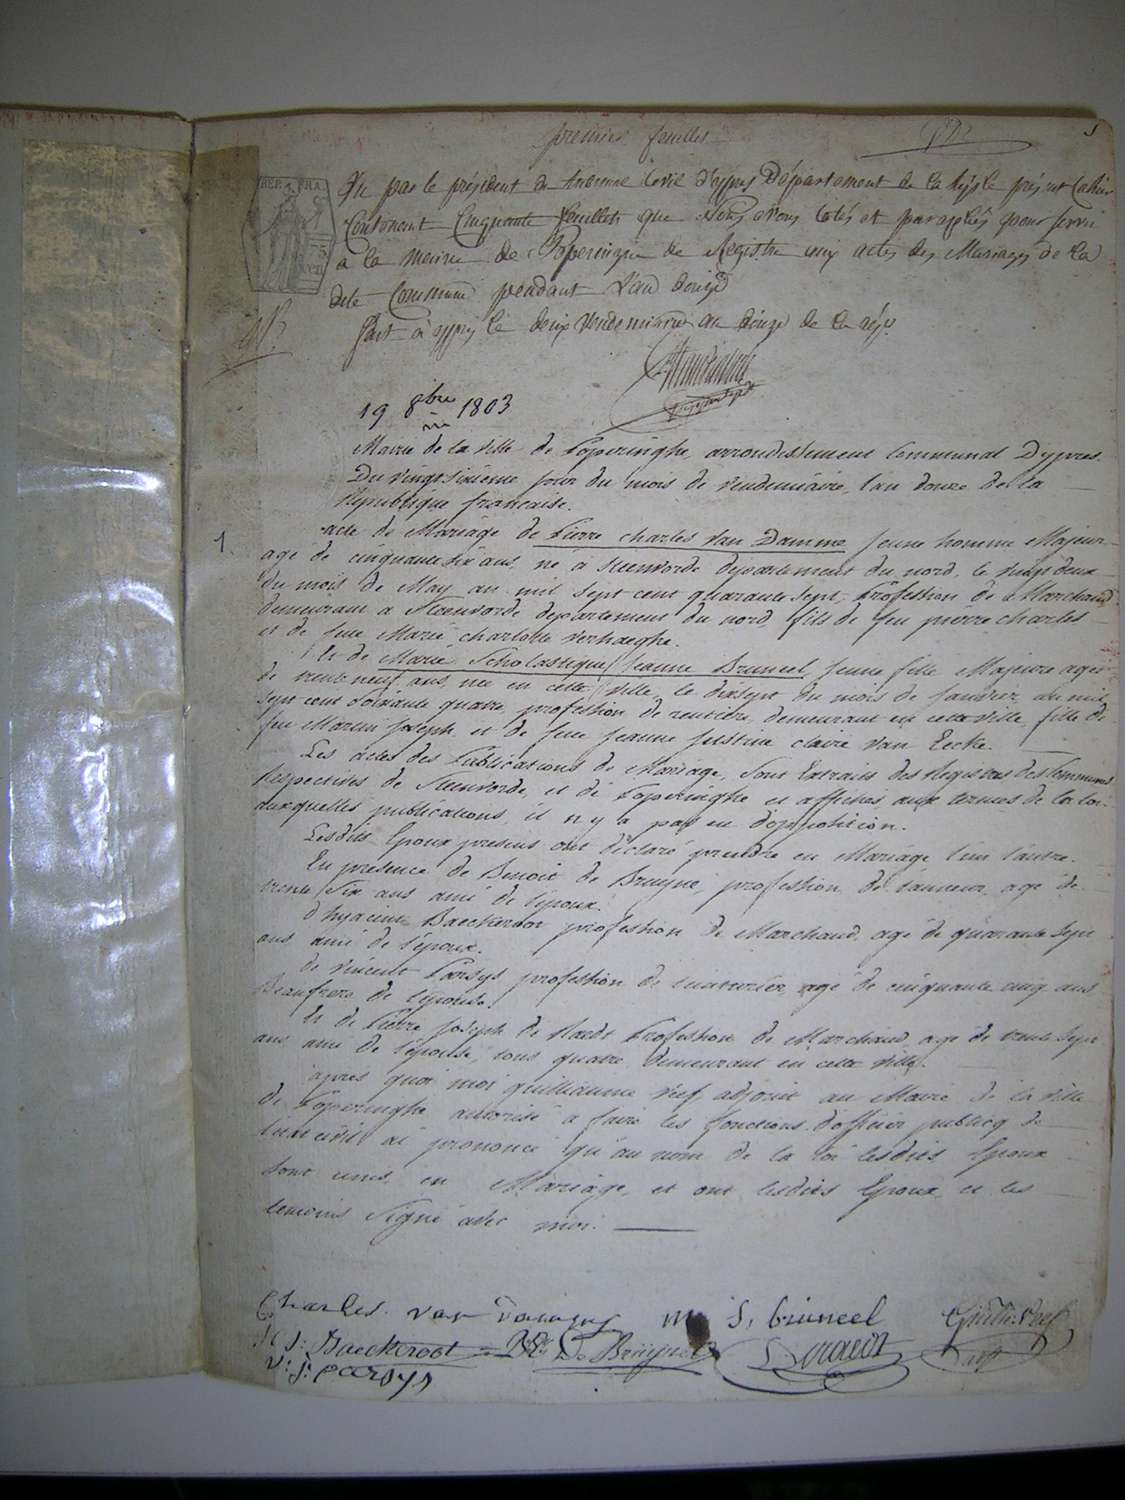 premier feuillet
1
REP. FRA.
Vu par le président du tribunal Civil d'ypres Département de la Lys le présent Cahier
Contenant Cinquante feuillets que Nous avons Cotés et paraphés pour servir
à la Mairie de Poperinghe de Registre aux actes des Mariages de la
dite Commune pendant L'an douze
fait à ypres le deux Vendemiaire an douze de la rép.
19 8bre 1803
Mairie de la ville de Poperinghe, arrondissement Communal Dypres.
Du vingt sixieme jour du mois de vendemiaire, l'an douze de la
République francaise.
1.
acte de Mariage de Pierre charles Van Damme jeune homme Majeur
agé de cinquante six ans, né à Steenvorde departement du nord, le vingt deux
du mois de May an mil sept cent quarante sept, Profession de Marchand
demeurant a Steenvorde departement du nord, fils de feu pierre charles
et de feue Marie charlotte Verhaeghe.
Et de Marie Scholastique Jeanne Bruneel jeune fille Majeure agée
de trente neuf ans, née en cette ville, le dixsept du mois de Janvier an mil
sept cent soixante quatre, profession de rentiere, demeurant en cette ville, fille de
feu Martin Joseph, et de feue Jeanne Justine claire Van Eecke.
Les actes des Publications de Mariage, sont Extraits des Registres des Communes
Respectives de Steenvorde, et de Poperinghe et affichés, aux termes de la loi
auxquelles publications, il n'y a pas eu d'opposition.
Lesdits Epoux presens ont déclaré prendre en Mariage l'un l'autre.
En presence de Benoit de Bruyne, profession de tanneur, agé de
trente six ans ami de l'époux.
d'hyacint Baeckeroot profession de Marchand, agé de quarante sept
ans ami de l'époux.
de vincent Parsys profession de teinturier agé de cinquante cinq ans
Beaufrere de l'épouse.
Et de Pierre Joseph de Raedt Profession de Marchand, agé de trente sept
ans, ami de l'épouse, tous quatre demeurant en cette ville.
après quoi moi guilliaume Veef adjoint au Maire de la ville
de Poperinghe autorisé a faire les fonctions d'officier publicq de
l'etat civil ai prononcé qu'au nom de la loi lesdits Epoux
sont unis, en Mariage, et ont lesdits Epoux et les
temoins signé avec moi.
Charles van damme m S, bruneel
J: Baeckeroot De Bruyne
V: J: parsys